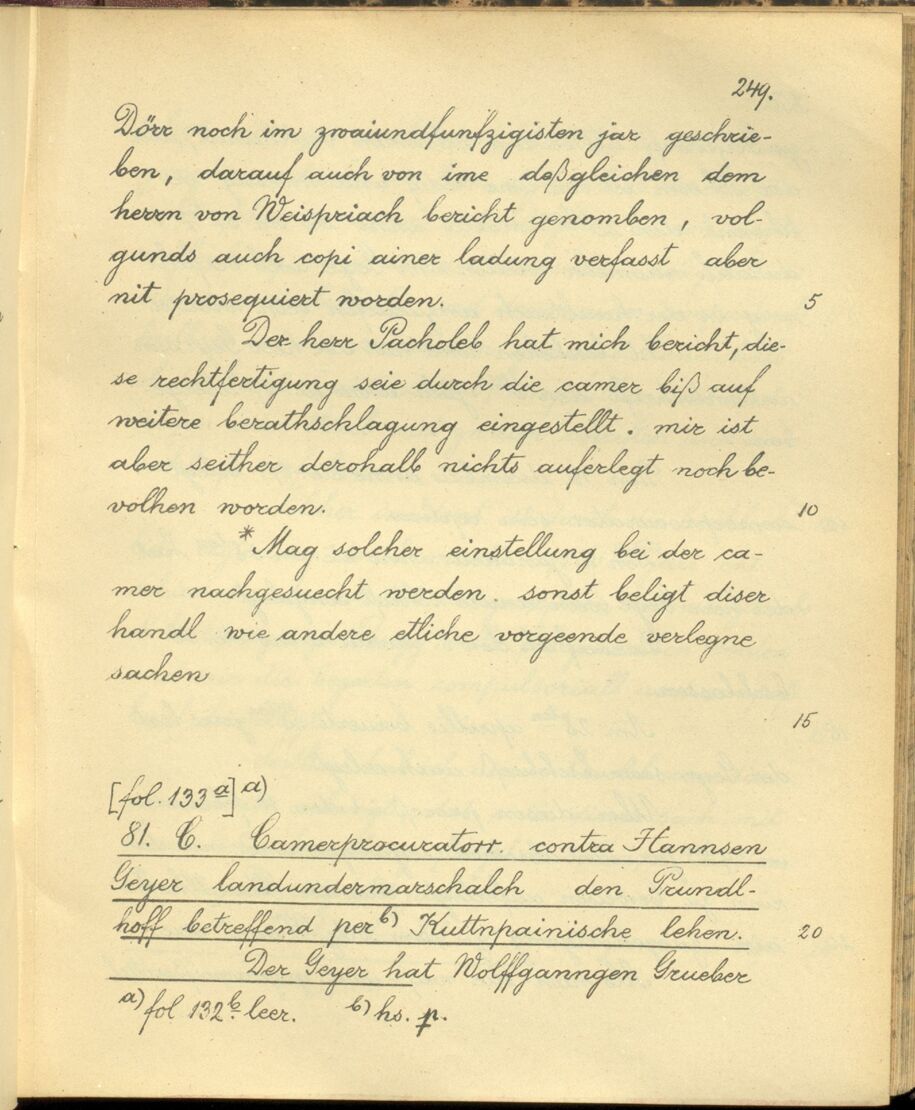 249.
Dörr noch im zwaiundfunfzigisten jar geschrie-
ben, darauf auch von ime deßgleichen dem
herrn von Weispriach bericht genomben, vol-
gunds auch copi ainer ladung verfasst aber
nit prosequiert worden. 5
Der herr Pacholeb hat mich bericht, die-
se rechtfertigung seie durch die camer biß auf
weitere berathschlagung eingestellt. mir ist
aber seither derohalb nichts auferlegt noch be-
volhen worden. 10
*Mag solcher einstellung bei der ca-
mer nachgesuecht werden. sonst beligt diser
handl wie andere etliche vorgeende verlegne
sachen
15
[fol. 133a] a)
81. C. Camerprocuratorr. contra Hannsen
Geyer landundermarschalch den Prundl-
hoff betreffend per b) Kuttnpainische lehen. 20
Der Geyer hat Wolffganngen Grueber
a) fol 132b. leer. b) hs. p.